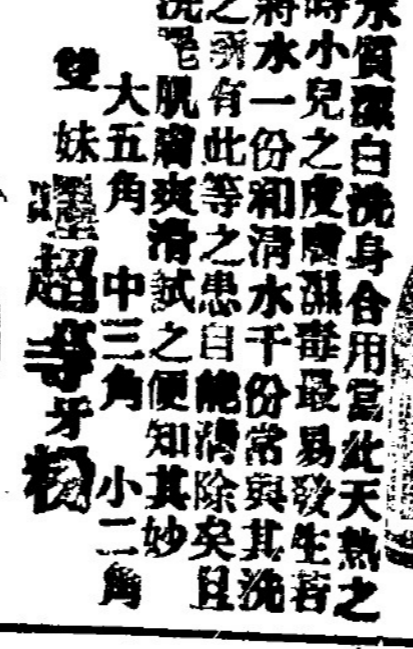 水質潔白洗身合用當此天熱之
時小兒之皮膚濕毒最易發生若
將水一份和清水千份常與其洗
之所有此等之患自能清除矣且
洗 肌膚爽滑試之便知其妙
大五角 中三角 小二角
雙妹 超等牙粉